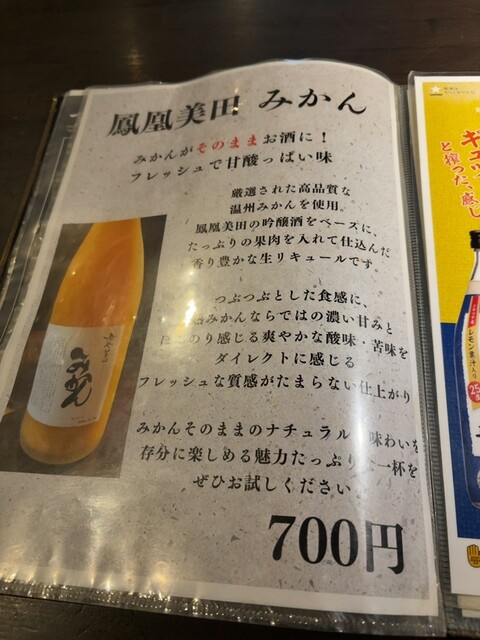 鳳凰美田 みかん
みかんがそのままお酒に！
フレッシュで甘酸っぱい味
厳選された高品質な
温州みかんを使用。
鳳凰美田の吟醸酒をベースに、
たっぷりの果肉を入れて仕込んだ
香り豊かな生リキュールです。
つぶつぶとした食感に、
みかんならではの濃い甘みと
ほんのり感じる爽やかな酸味・苦味を
ダイレクトに感じる
フレッシュな質感がたまらない仕上がり
みかんそのままのナチュラル 味わいを
存分に楽しめる魅力たっぷり 一杯を
ぜひお試しください
700円
みかん
ギュッ
と搾った、感じ
レモン果汁入り
25